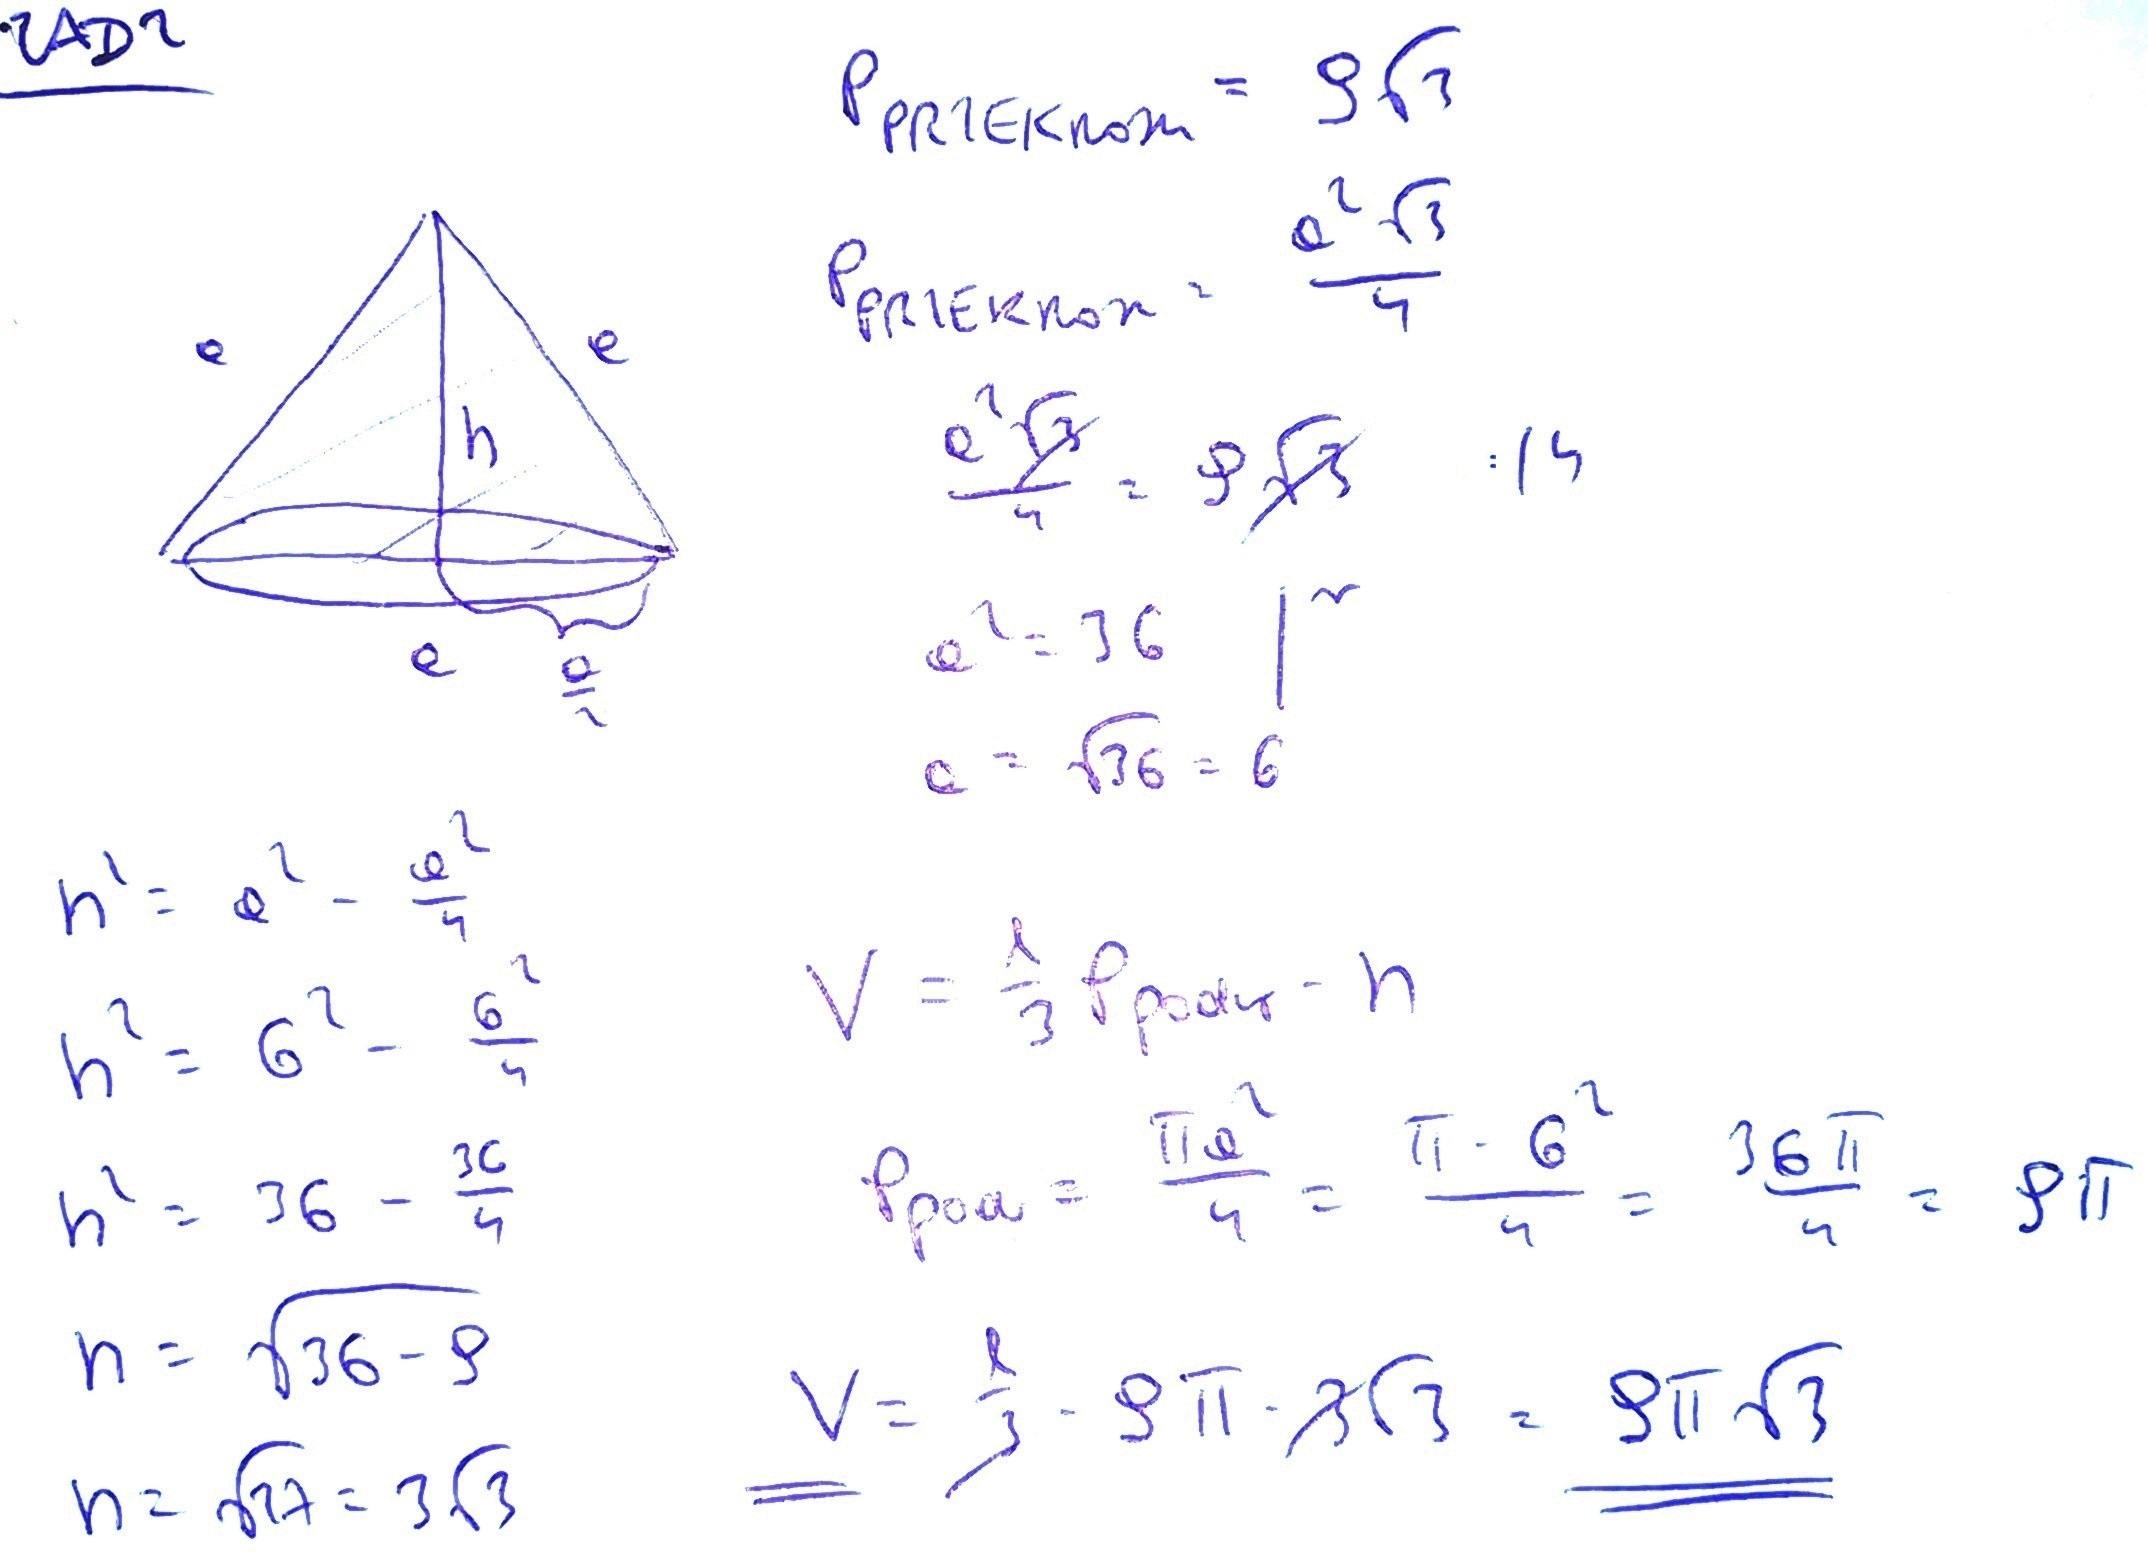 ZAD2
P PRZEKROJU = 9√3
P PRZEKROJU = a²√3/4
a²√3/4 = 9√3 :|4
a² = 36 |√
a = √36 = 6
a
a
h
a
a/2
h² = a² - a²/4
h² = 6² - 6²/4
h² = 36 - 36/4
h = √36-9
h = √27 = 3√3
V = 1/3 P podst · h
P pod = πa²/4 = π · 6²/4 = 36π/4 = 9π
V = 1/3 · 9π · 3√3 = 9π√3